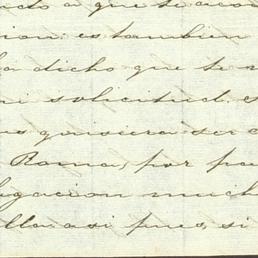 a que te acon
cion: es tambien
ha dicho que te
mi solicitud. es
quisiera ser
Roma, por pa
ligacion much
ella asi pues, si